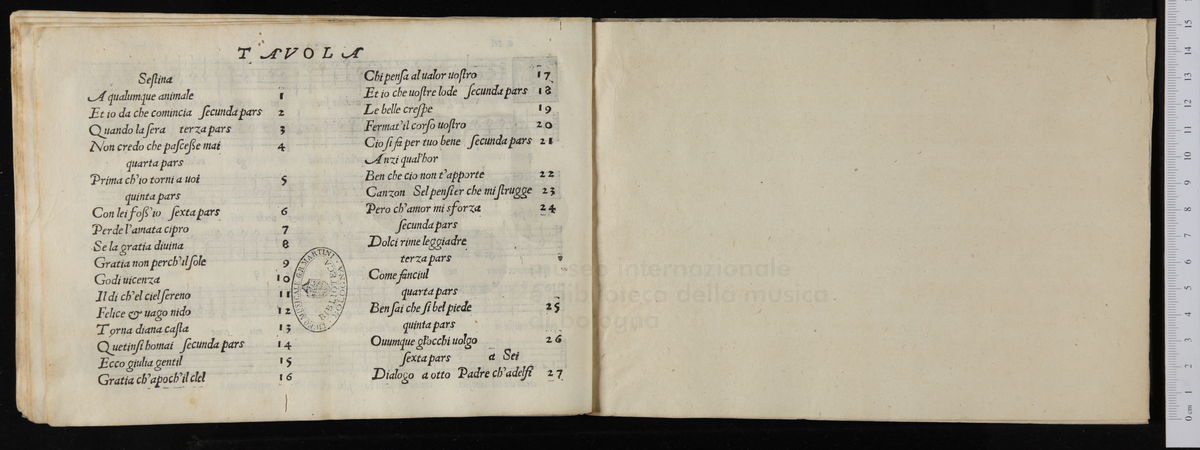 TAVOLA
Sestina
A qualumque animale 1
Et io da che comincia secunda pars 2
Quando la sera terza pars 3
Non credo che pascesse mai 4
quarta pars
Prima ch'io torni a uoi 5
quinta pars
Con lei foss'io sexta pars 6
Perde l'amata cipro 7
Se la gratia diuina 8
Gratia non perch'il sole 9
Godi uicenza 10
Il di ch'el ciel sereno 11
Felice & uago nido 12
Torna diana casta 13
Quetinsi homai secunda pars 14
Ecco giulia gentil 15
Gratia ch'apoch'il ciel 16
Chi pensa al ualor uostro 17
Et io che uostre lode secunda pars 18
Le belle crespe 19
Fermat'il corso uostro 20
Cio si fa per tuo bene secunda pars 21
Anzi qual'hor
Ben che cio non t'apporte 22
Canzon Sel pensier che mi strugge 23
Pero ch'amor mi sforza 24
secunda pars
Dolci rime leggiadre
terza pars
Come fanciul
quarta pars
Ben sai che si bel piede 25
quinta pars
Ouumque gl'occhi uolgo 26
sexta pars a Sei
Dialogo a otto Padre ch'adelsi 27
LICEO MUSICALE G.B. MARTINI
BOLOGNA
BIBLIOTECA
museo internazionale
e biblioteca della musica
di bologna
0 cm 1 2 3 4 5 6 7 8 9 10 11 12 13 14 15